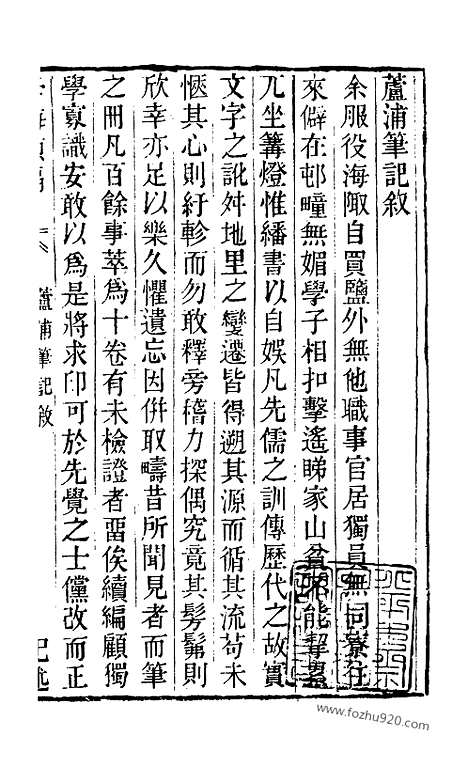 蘆浦筆記敘
余服役海陬自買鹽外無他職事官居獨員無同寮往
來僻在邨疃無媚學子相扣擊遙睇家山貧不能挈累
兀坐篝燈惟繙書以自娛凡先儒之訓傳歷代之故實
文字之訛舛地里之變遷皆得遡其源而循其流苟未
愜其心則紆軫而勿敢釋旁稽力探偶究竟其髣髴則
欣幸亦足以樂久懼遺忘因併取疇昔所聞見者而筆
之冊凡百餘事萃爲十卷有未檢證者畱俟續編顧獨
學寡識安敢以爲是將求印可於先覺之士儻改而正
蘆浦筆記敘
www.fozhu920.com